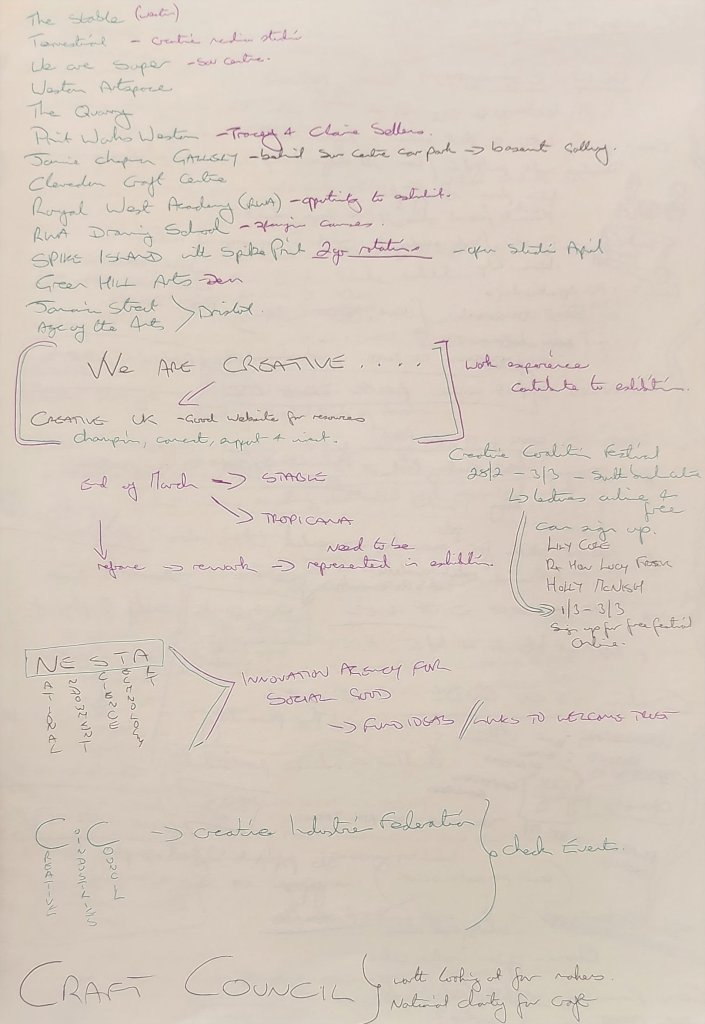 The Stable (Weston)
Terrestrial - creative media studio
We are Super - Sov Centre.
Weston Artspace
The Quarry
Print Works Weston - Tracey & Claire Sellers.
Jamie Chapman GALLERY - behind Sov Centre car park → basement gallery.
Clevedon Craft Centre
Royal West Academy (RWA) - opportunity to exhibit.
RWA Drawing School - courses.
SPIKE ISLAND with Spike Print 2 yr - open studio April
Green HILL Arts -
Jamaica Street
Age of the Arts
Bristol.
We ARE CREATIVE . . . .
work experience
contribute to exhibition.
CREATIVE UK - Good website for resources
champion, connect, support & invest.
Creative Coalition Festival
28/2 - 3/3 -
↳ lectures online & free
can sign up.
LILY COLE
HOLLY McNISH
1/3 - 3/3
Sign up for free festival
Online.
End of March → STABLE
→ TROPICANA
need to be
refine → rework → represented in exhibition.
NESTA
NATIONAL
ENDOWMENT
SCIENCE
TECHNOLOGY
ART
INNOVATION AGENCY FOR
SOCIAL GOOD
→ FUND IDEAS / LINKS TO WELCOME TRUST
CREATIVE
INDUSTRIES
COUNCIL
→ Creative Industries Federation
check Events.
CRAFT COUNCIL
worth looking at for makers.
National charity for craft